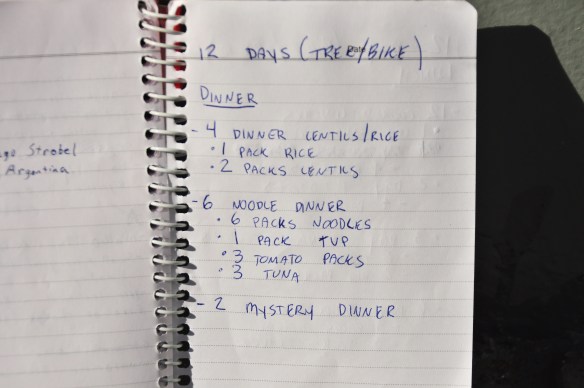 12 DAYS (TREK/BIKE)
DINNER
- 4 DINNER LENTILS/RICE
• 1 PACK RICE
• 2 PACKS LENTILS
- 6 NOODLE DINNER
• 6 PACKS NOODLES
• 1 PACK TVP
• 3 TOMATO PACKS
• 3 TUNA
- 2 MYSTERY DINNER
Strobel
Argentina